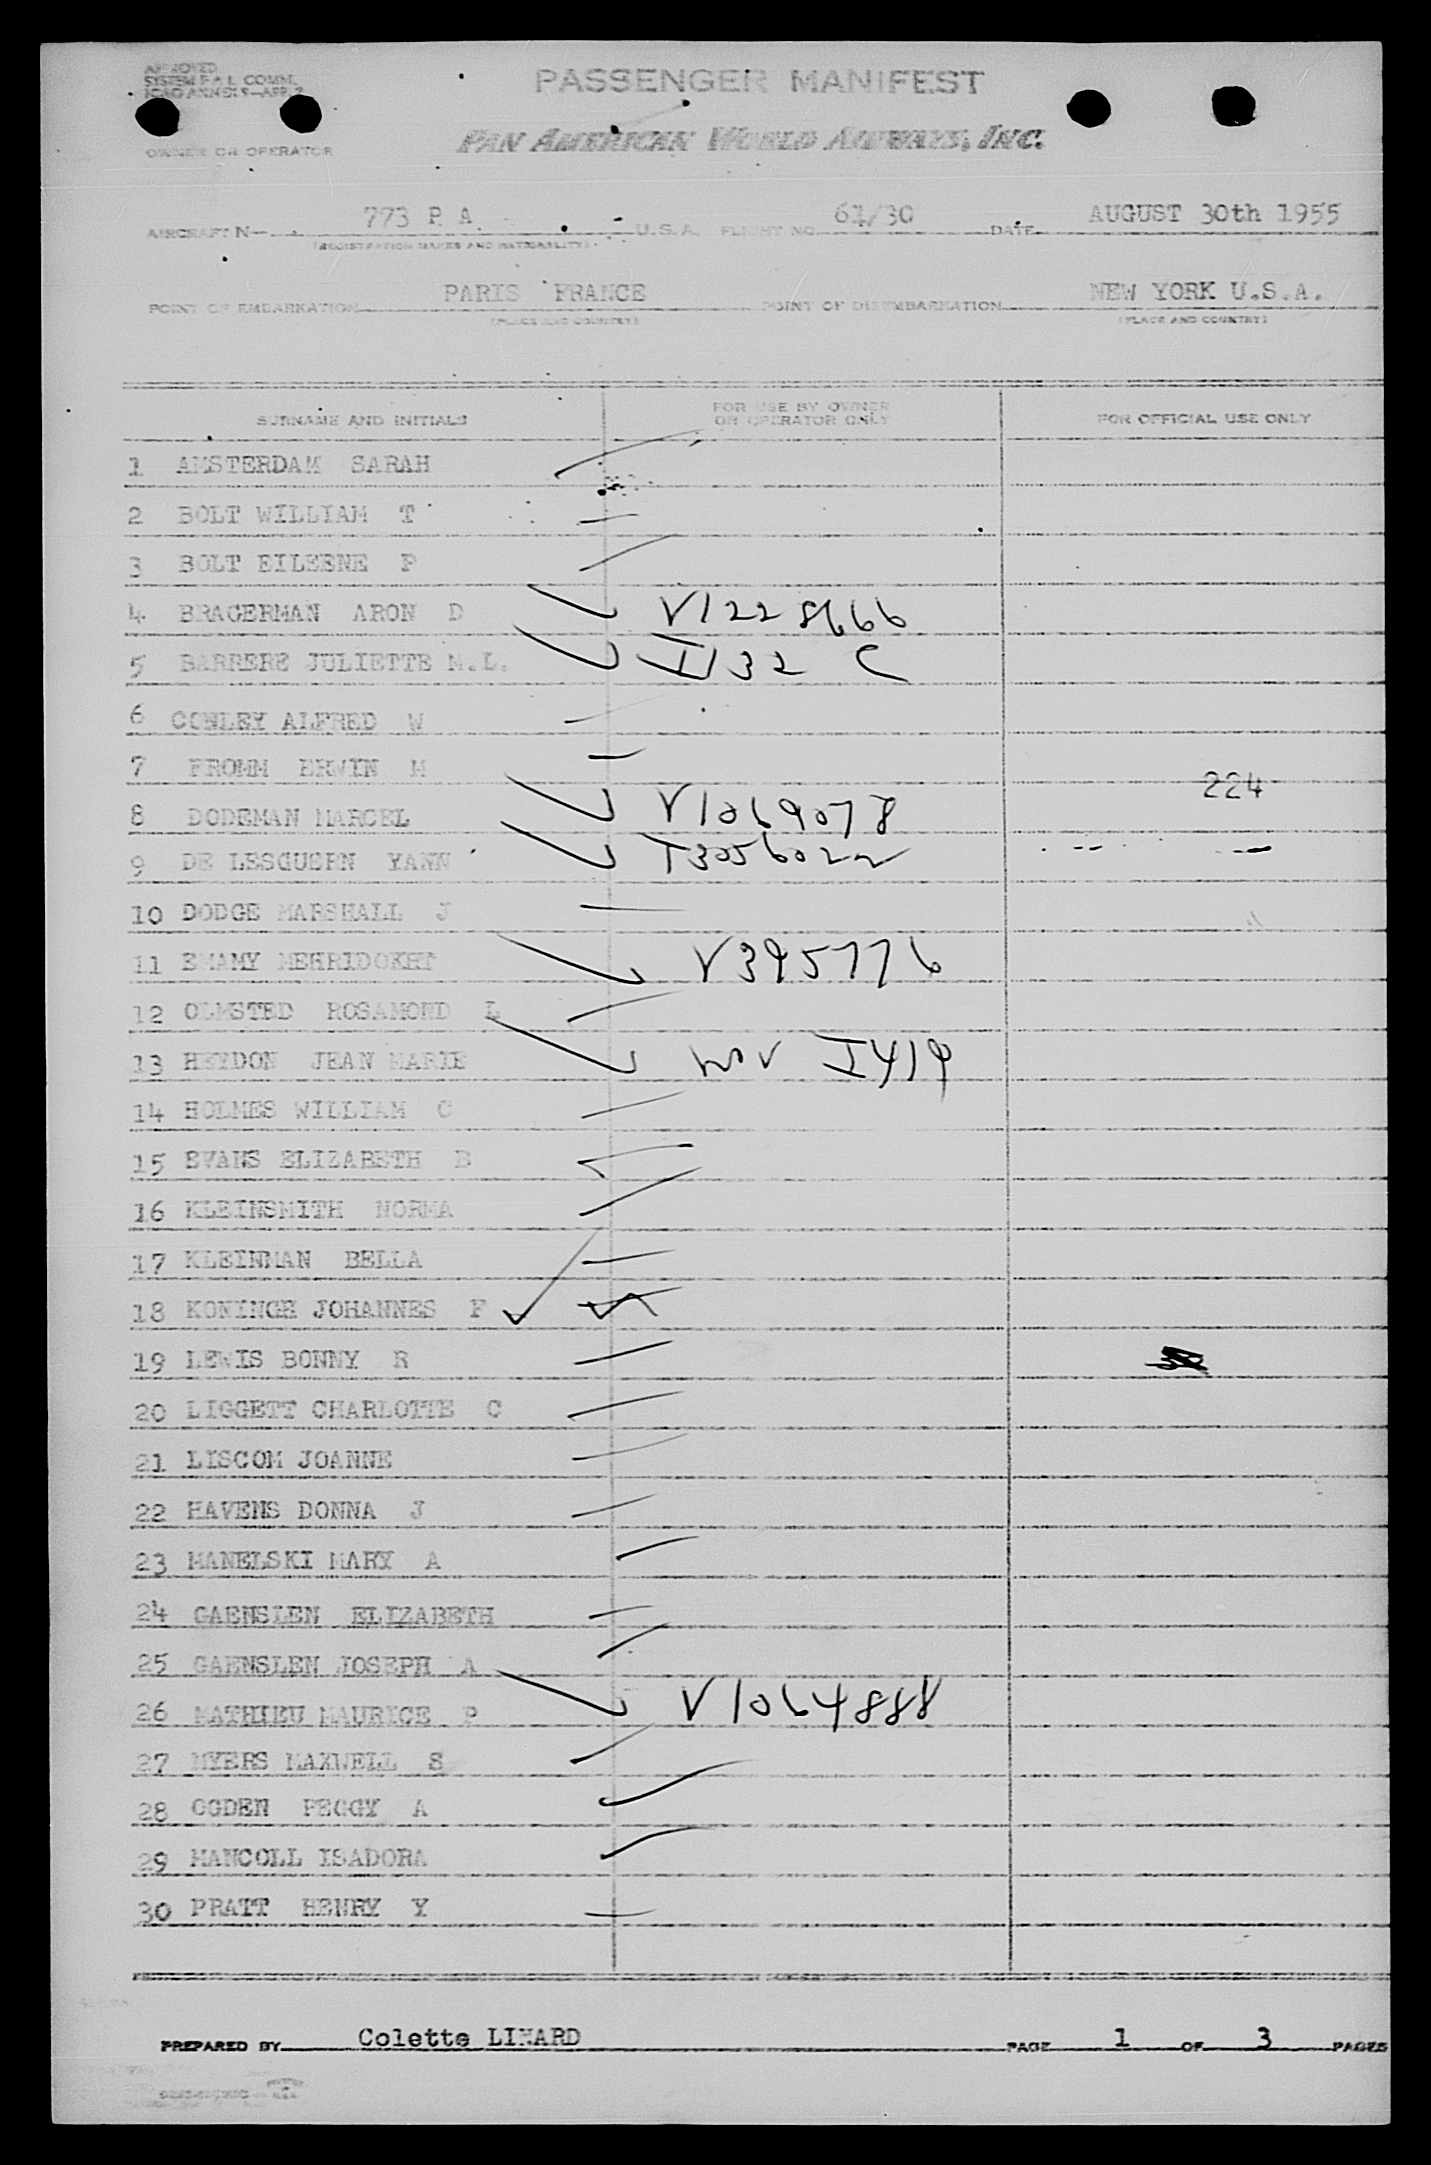 APPROVED
SYSTEM F & L COMM.
PASSENGER MANIFEST
PAN AMERICAN WORLD AIRWAYS, INC.
OWNER OR OPERATOR
AIRCRAFT N— 773 P A U.S.A. FLIGHT NO. 61/30 DATE AUGUST 30th 1955
(REGISTRATION MARKS AND NATIONALITY)
POINT OF EMBARKATION PARIS FRANCE POINT OF DISEMBARKATION NEW YORK U.S.A.
(PLACE AND COUNTRY) (PLACE AND COUNTRY)
SURNAME AND INITIALS FOR USE BY OWNER OR OPERATOR ONLY FOR OFFICIAL USE ONLY
1 AMSTERDAM SARAH
2 BOLT WILLIAM T
3 BOLT EILEENE P
4 BRAGERMAN ARON D V1228666
5 BARRERE JULIETTE M.L. I132 C
6 CONLEY ALFRED W
7 FROMM ERWIN M
224
8 DODEMAN MARCEL V1069078
9 DE LESGUERN YANN
10 DODGE MARSHALL J
11 EMAMY MEHRIDOKHT V395776
12 OLMSTED ROSAMOND L
13 HEYDON JEAN MARIE I419
14 HOLMES WILLIAM C
15 EVANS ELIZABETH B
16 KLEINSMITH NORMA
17 KLEINMAN BELLA
18 KONINGE JOHANNES F
19 LEWIS BONNY R
20 LIGGETT CHARLOTTE C
21 LISCOM JOANNE
22 HAVENS DONNA J
23 MANELSKI MARY A
24 GAENSLEN ELIZABETH
25 GAENSLEN JOSEPH A
26 MATHIEU MAURICE P V1064888
27 MYERS MAXWELL S
28 OGDEN PEGGY A
29 MANCOLL ISADORA
30 PRATT HENRY Y
PREPARED BY Colette LINARD PAGE 1 OF 3 PAGES